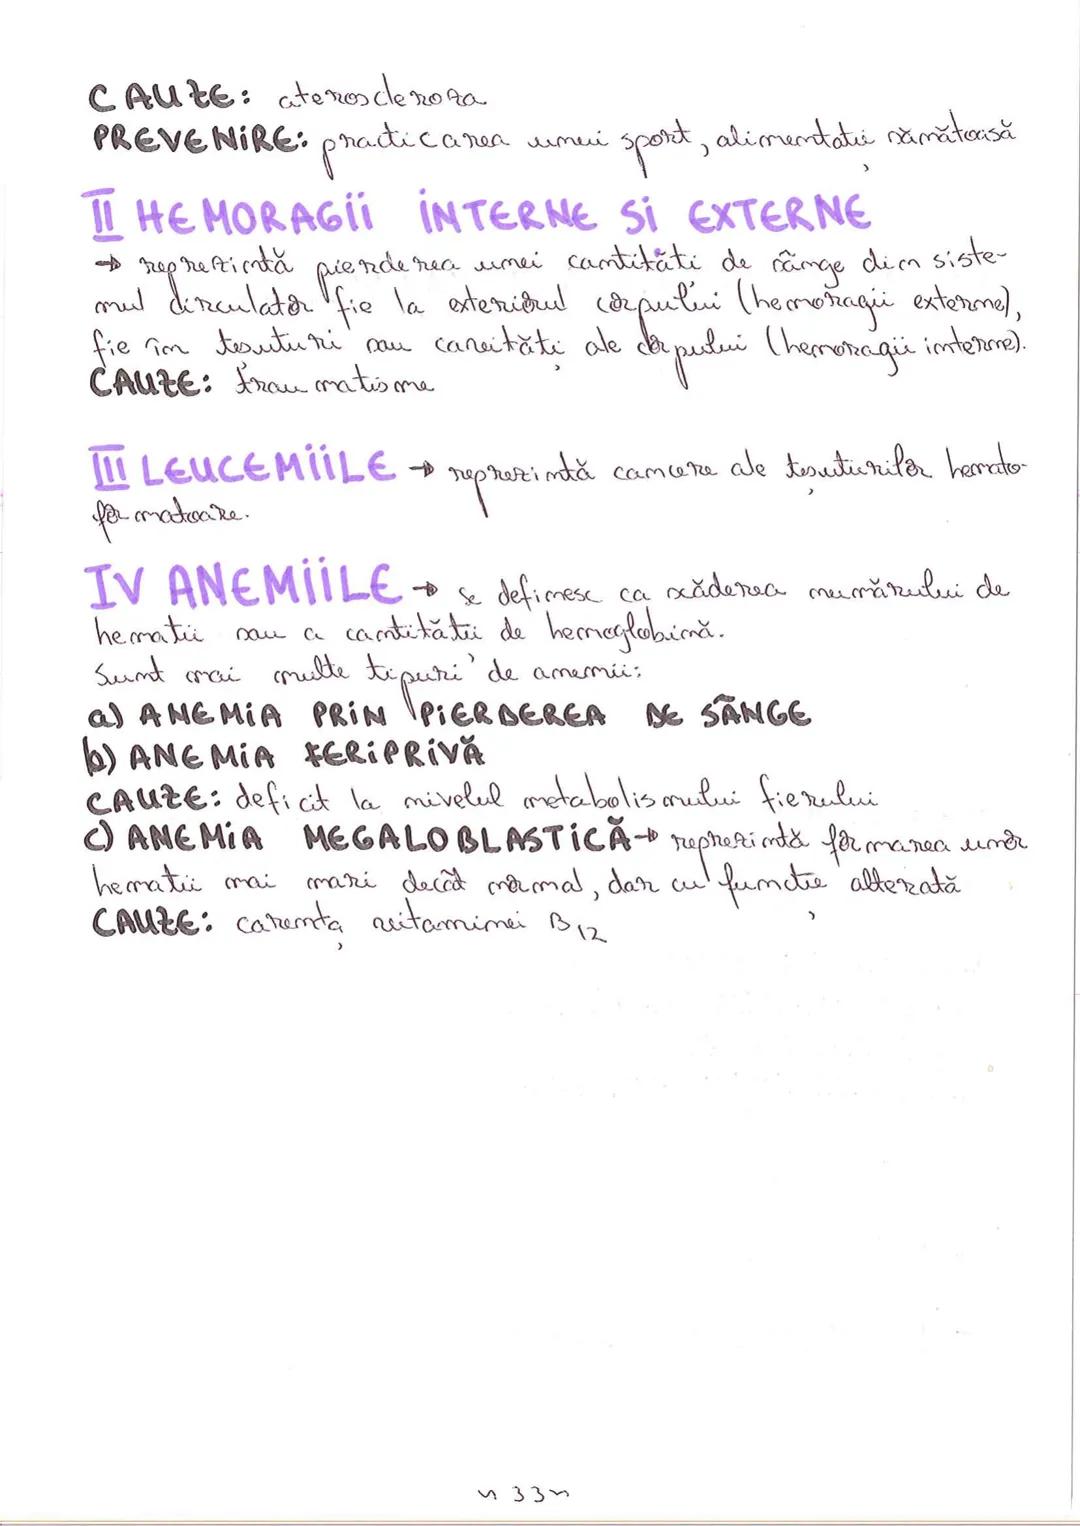 CAUZE: ateroscleroza
PREVENIRE: practicarea unui sport, alimentație sănătoasă
II HEMORAGII INTERNE SI EXTERNE
→ reprezintă pierderea unei cantități de sânge din siste-
mul circulator fie la exteriorul corpului (hemoragii externe),
fie în țesuturi sau cavități ale corpului (hemoragii interne).
CAUZE: traumatisme
III LEUCEMIILE → reprezintă cancere ale țesuturilor hemato-
formatoare.
IV ANEMIILE → se definesc ca scăderea numărului de
hematii sau a cantității de hemoglobină.
Sunt mai multe tipuri de anemii:
a) ANEMIA PRIN PIERDEREA DE SÂNGE
b) ANEMIA FERIPRIVĂ
CAUZE: deficit la nivelul metabolismului fierului
c) ANEMIA MEGALOBLASTICĂ → reprezintă formarea unor
hematii mai mari decât normal, dar cu funcție alterată
CAUZE: carența vitaminei B12
~ 33 ~